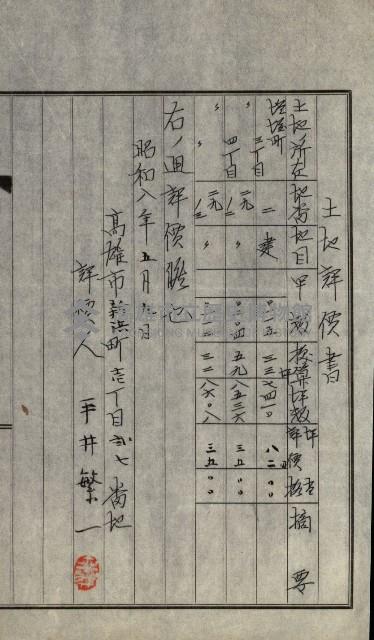 土地評價書
土地ノ所在 地番 地目 甲数 換算坪数 坪評價格 摘要
塩埕町三丁目 二 建 三三七四一〇 八二〇〇
〃 四丁目 二九ノ一 〃 五九八五三六 三五〇〇
〃 〃 二九ノ三 〃 三二八六〇八 三五〇〇
右ノ通評價候也
昭和八年五月 日
高雄市新浜町壱丁目弍七番地
評價人 平井繁一